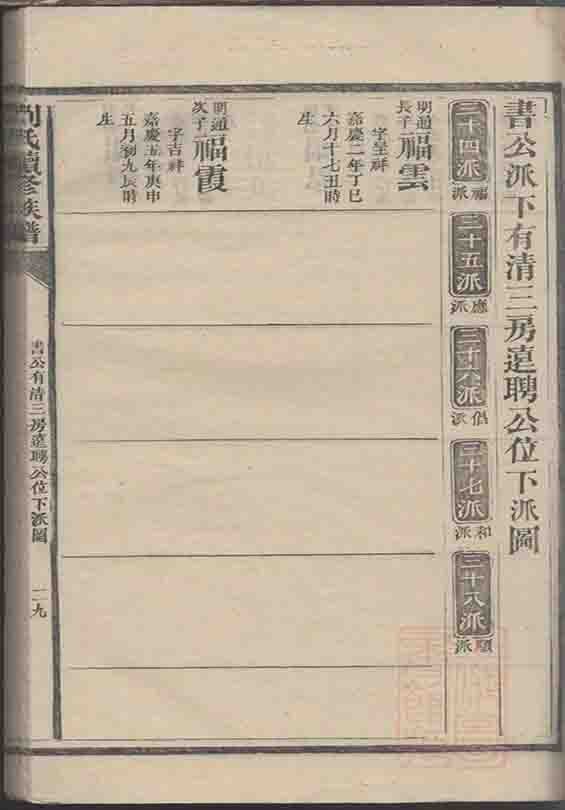 書公派下有清三房遠聘公位下派圖
二十四派
福派
二十五派
應派
二十六派
侶派
二十七派
和派
二十八派
順派
明通
長子
福雲
字呈祥
嘉慶二年丁巳
六月十七丑時
生
明通
次子
福霞
字吉祥
嘉慶五年庚申
五月初九辰時
生
劉氏續修族譜
書公有清三房遠聘公位下派圖
二九